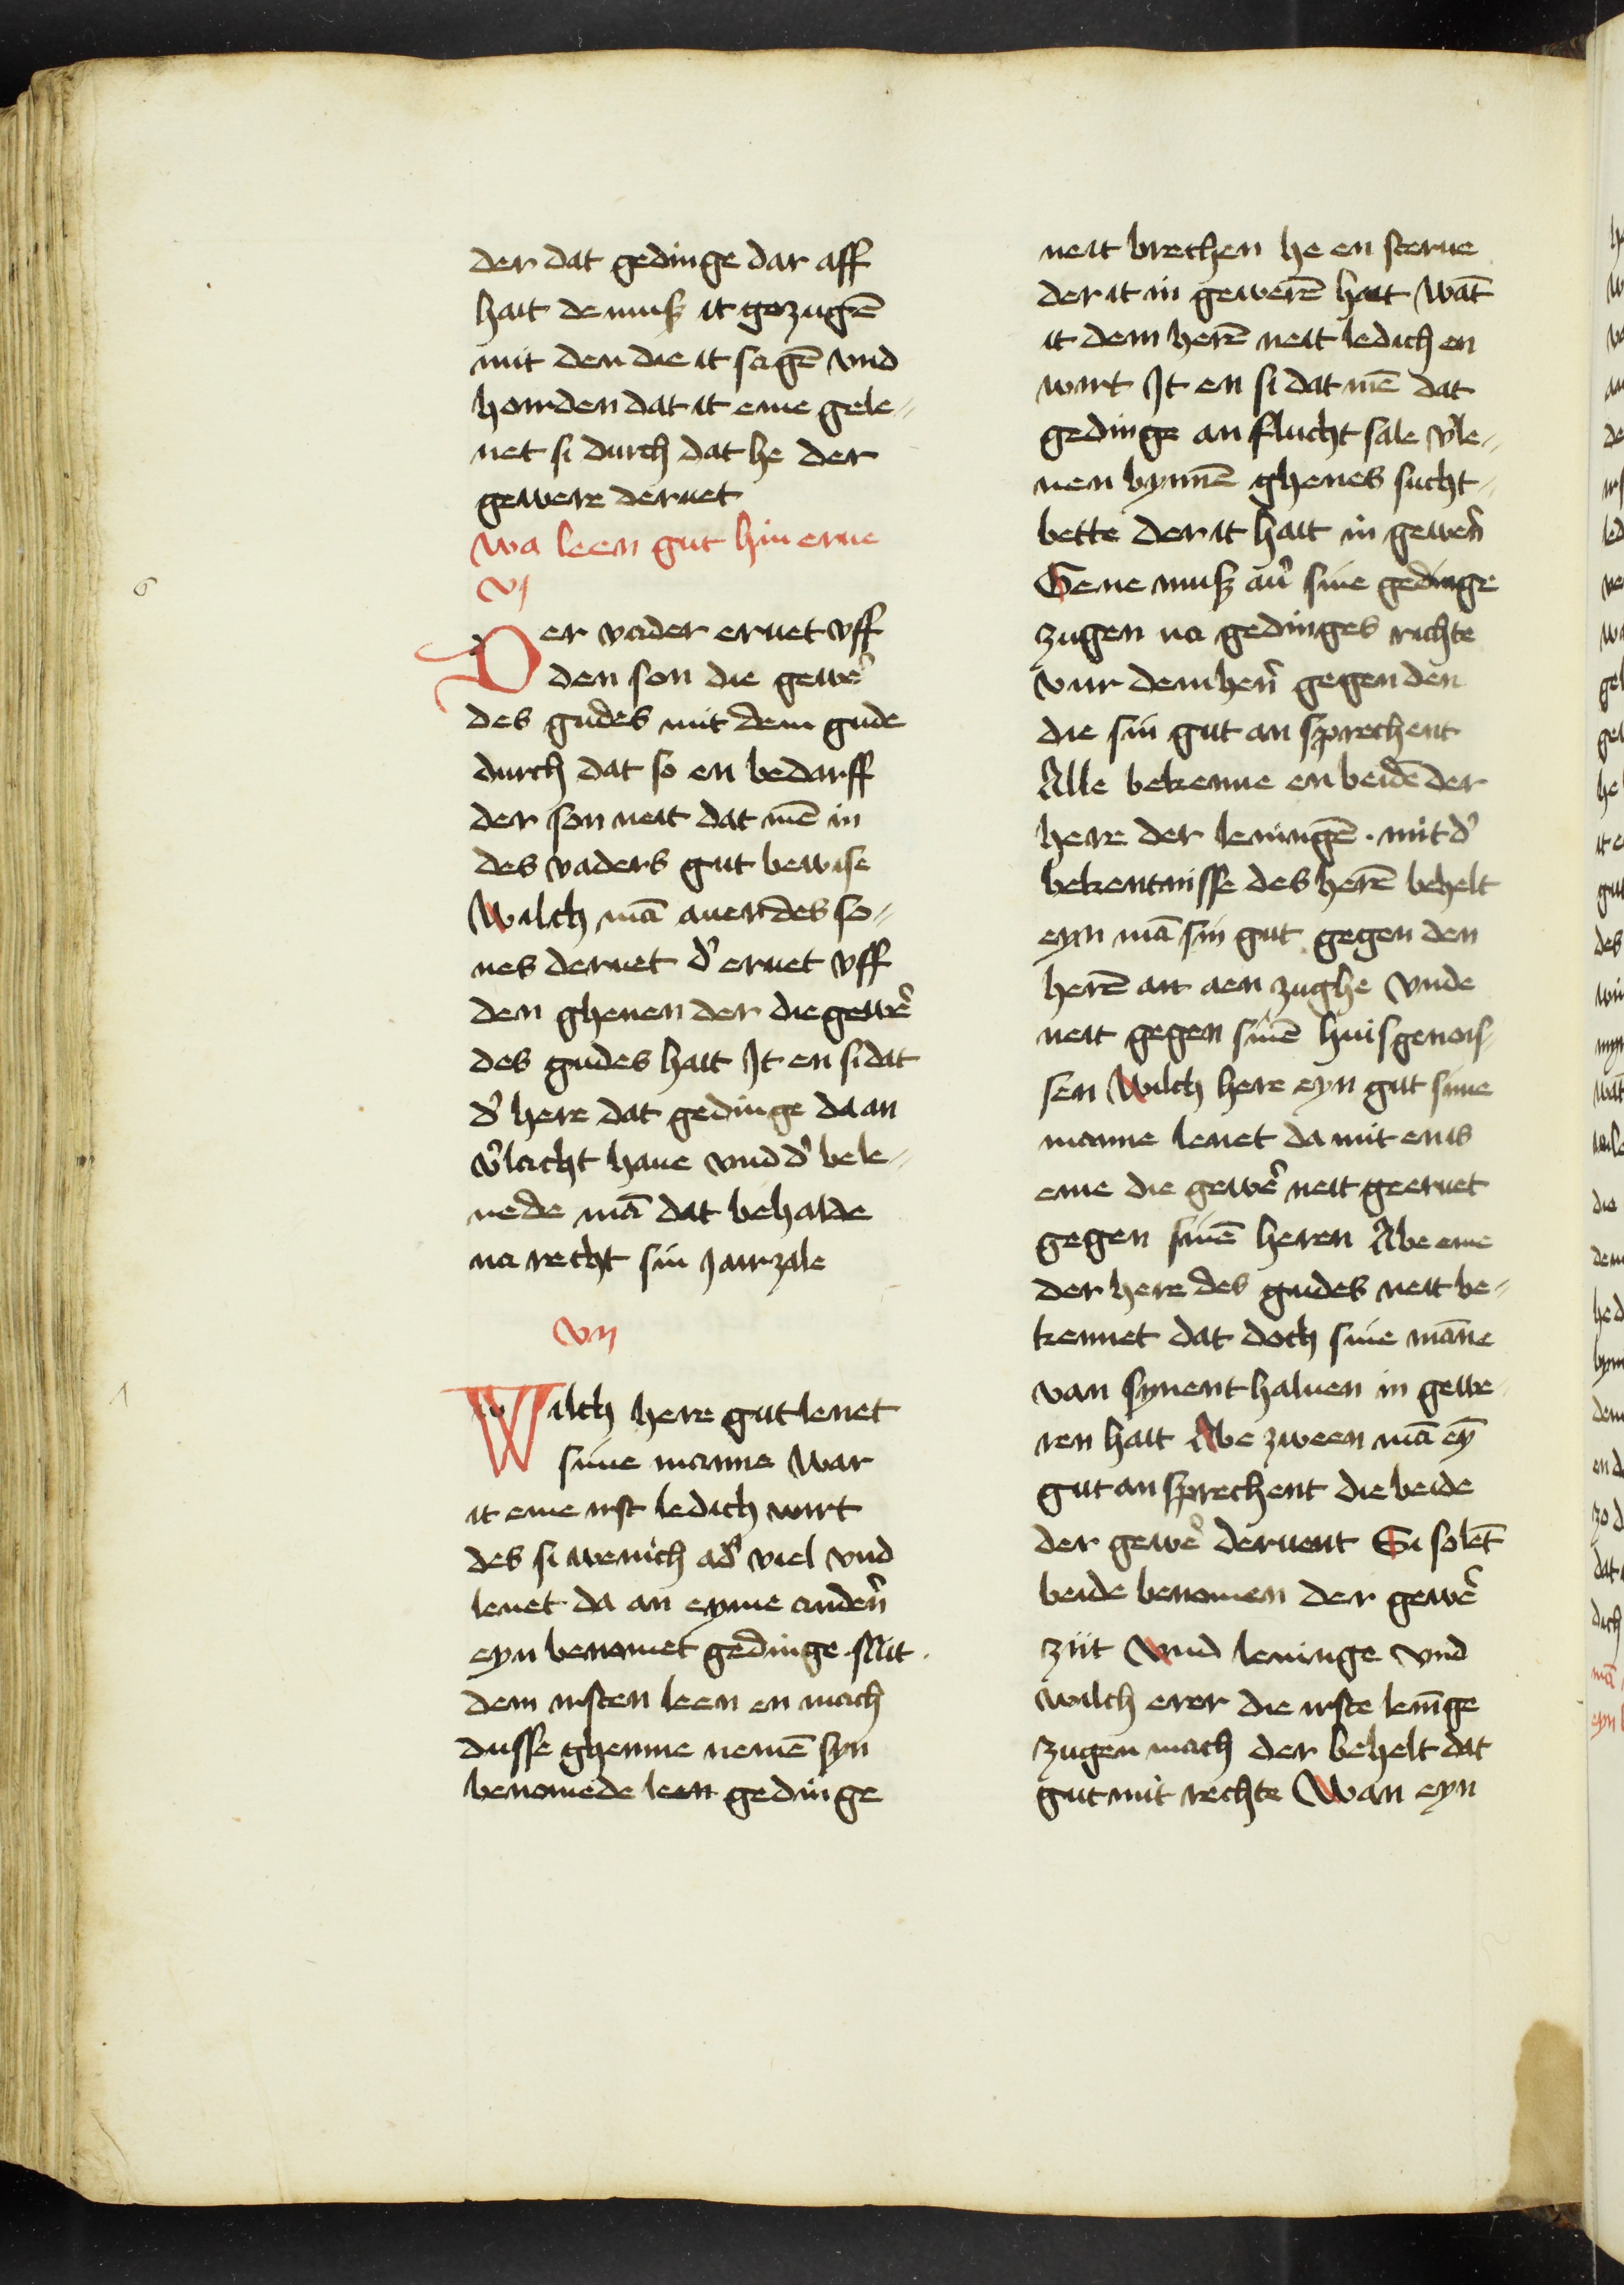 der dat gedinge dar aff
hait de muß it gezugē
mit den die it sagē vnd
hoirden dat it eme gele-
net si durch dat he der
gewere deruet
wa leen gut hin erue
vj
6
Der vader eruet vff
den son die gewe᷑
des gudes mit dem gude
durch dat so en bedarff
der son neit dat mē in
des vaders gut bewise
Wilch mā auer des so-
nes deruet d᷑ eruet vff
den ghenen der die gewe᷑
des gudes hait It en si dat
d᷑ here dat gedinge da an
v᷑lacht haue vnd d᷑ bele-
nede mā dat behalde
na recht sin jairzale
vij
Wilch here gut lenet
sime manne war
it eme irst ledich wirt
des si wenich ad᷑ viel vnd
lenet da an eyme anden᷑
eyn benomet gedinge Mit
dem irsten leen en mach
dusse ghenme nemē syn
benomede leen gedinge
neit brechen he en sterue
der it in gewerē hait wāt
it dem herē neit ledich en
wirt It en si dat mē dat
gedinge an flucht sale v᷑le-
nen bynnē ghenes sucht-
bette der it hait in gewen᷑
Gene muß au᷑ sine gedinge
zugen na gedinges richte
vur dem hen᷑ gegen den
die sin gut an sprechent
Alle bekenne en beidē der
here der leningē · mit d᷑
bekentnisse des herē behelt
eyn mā sin gut gegen den
herē an aen zughe vnde
neit gegen sinē huisgenois-
sen Wilch here eyn gut sime
manne lenet da mit enis
eme die gewe᷑ neit geeruet
gegen sinē heren Abe eme
der here des gudes neit be-
kennet dat doch sine māne
van synent haluen in gewe-
ren hait Abe zween mā ey᷑
gut an sprechent die beide
der gewe᷑ deruent Si solēt
beide benomen der gewe᷑
ziit Vnd leninge vnd
wilch erer die irste lenīge
zugen mach der behelt dat
gut mit rechte Wan eyn